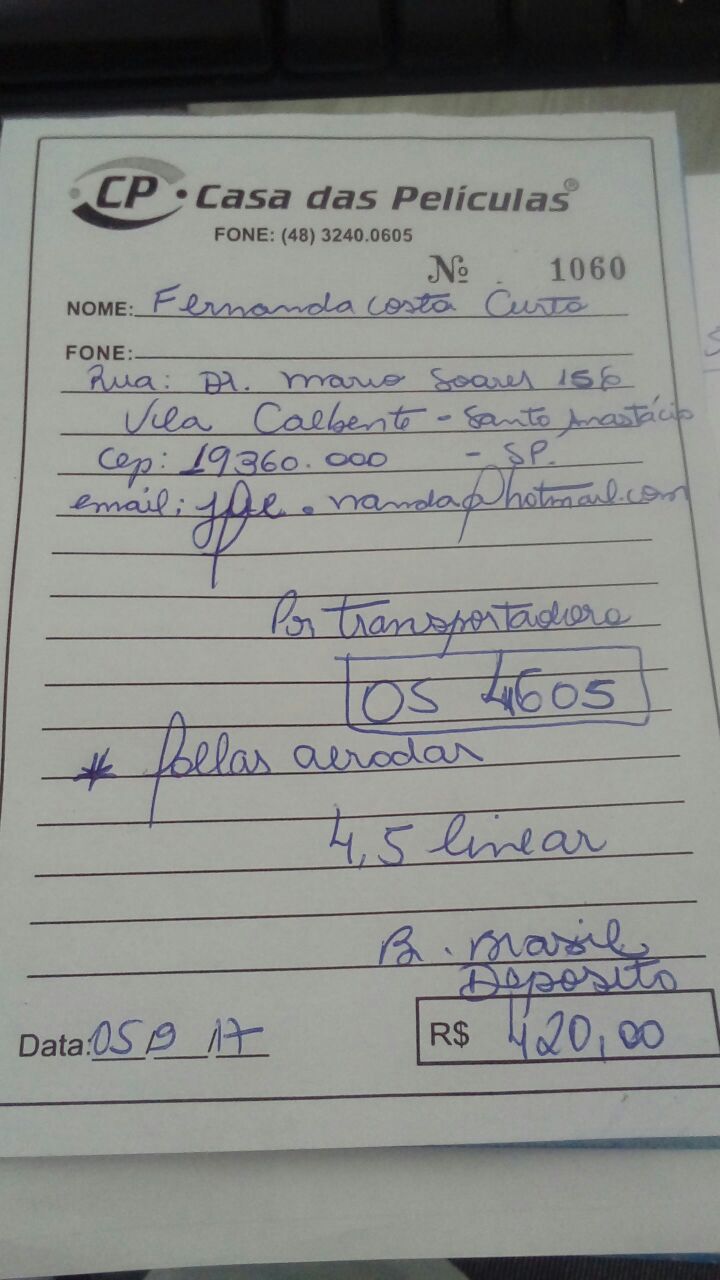 CP Casa das Películas®
FONE: (48) 3240.0605
Nº 1060
NOME: Fernanda Costa Curto
FONE:
Rua: Dr. Mario Soares 156
Vila Calbente - Santo Anastácio
Cep: 19360.000 - SP.
email: nanda@hotmail.com
Por transportadora
OS 4605
* follas aerodar
4,5 linear
B. Brasil
Deposito
Data: 05/9/17
R$ 420,00